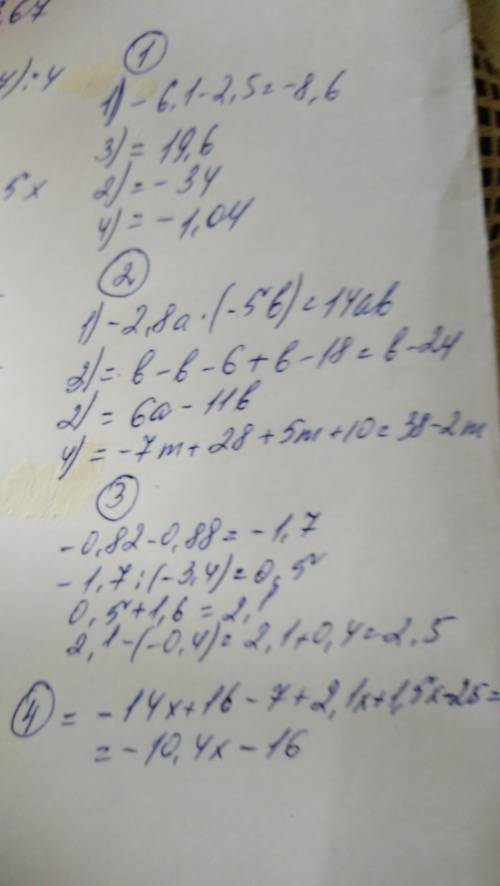 267
4):4
5x
1
1) - 6,1 - 2,5 = -8,6
3) = 19,6
2) = - 34
4) = - 1,04
2
1) - 2,8a · (-5b) = 14ab
3) = b - b - 6 + b - 18 = b - 24
2) = 6a - 11b
4) = -7m + 28 + 5m + 10 = 38 - 2m
3
-0,82 - 0,88 = -1,7
-1,7 : (-3,4) = 0,5
0,5 + 1,6 = 2,1
2,1 - (-0,4) = 2,1 + 0,4 = 2,5
4 = -14x + 16 - 7 + 2,1x + 1,5x - 25 =
= -10,4x - 16